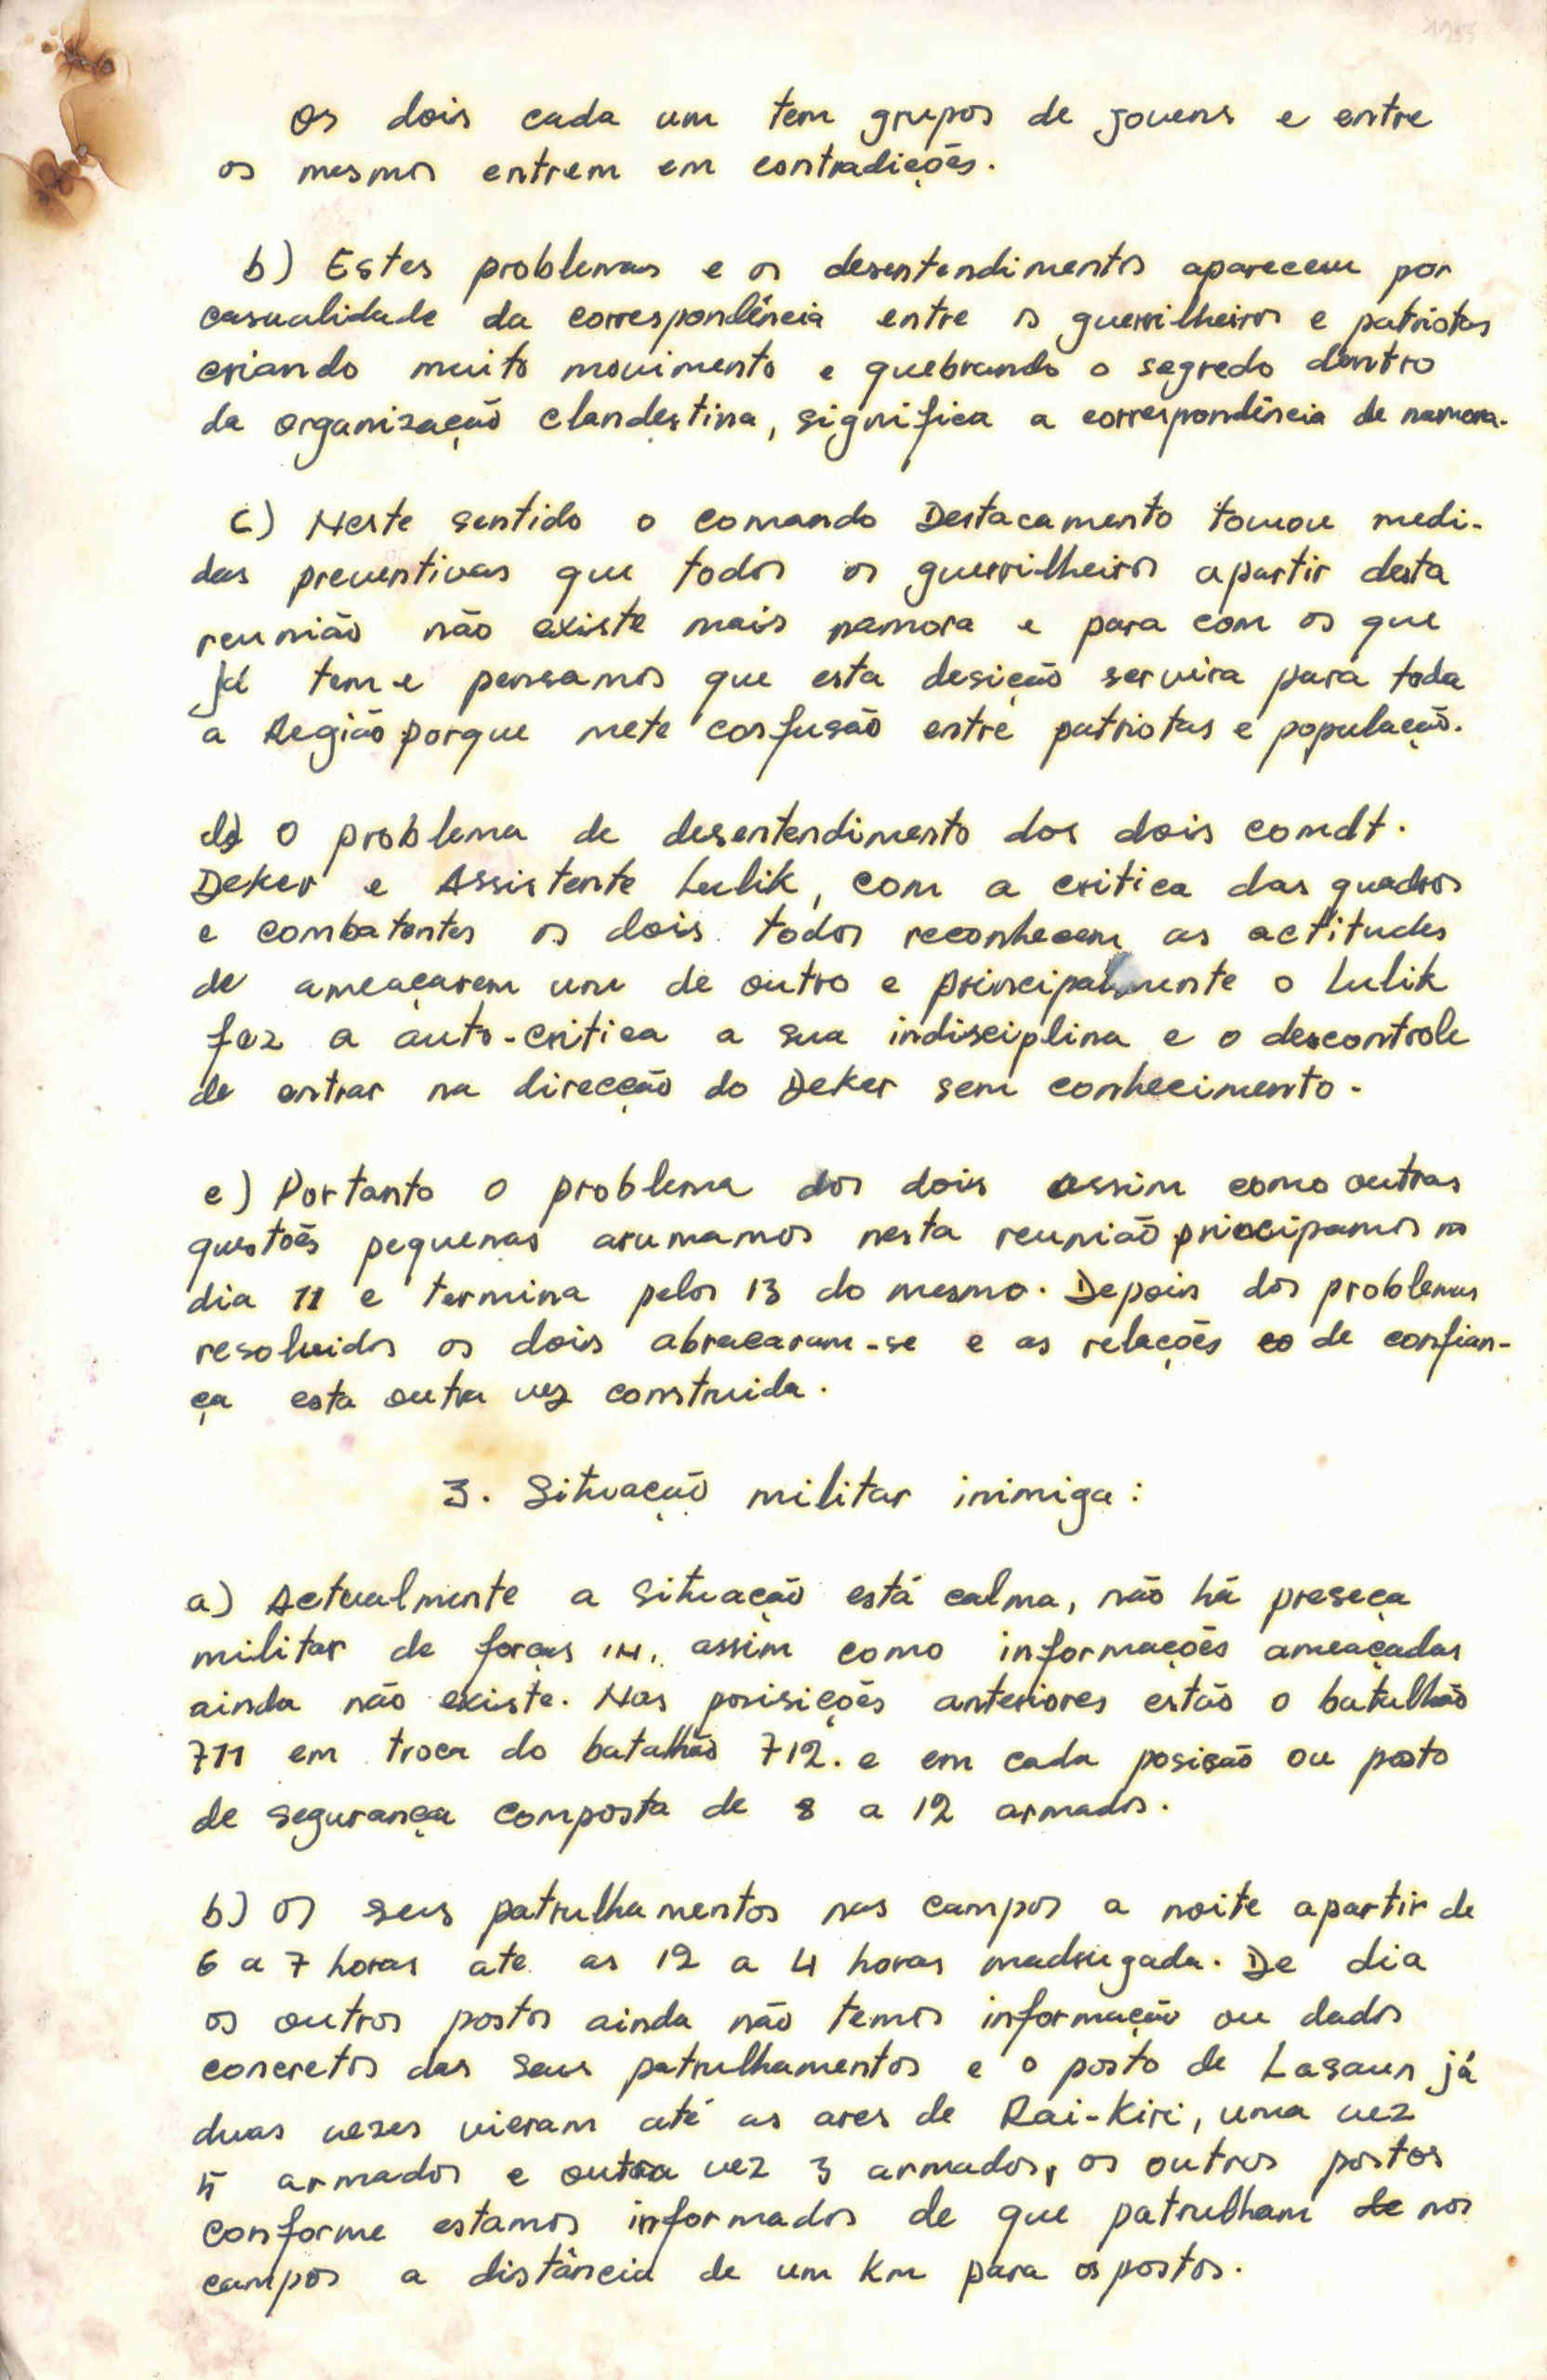 Os dois cada um tem grupos de jovens e entre
os mesmos entrem em contradições.
b) Estes problemas e os desentendimentos aparecem por
casualidade da correspondência entre os guerrilheiros e patriotas
criando muito movimento e quebrando o segredo dentro
da organização clandestina, significa a correspondência de namora.
c) Neste sentido o comando Destacamento tomou medi-
das preventivas que todos os guerrilheiros apartir desta
reunião não existe mais namora e para com os que
já tem e pensamos que esta desição servira para toda
a Região porque mete confusão entre patriotas e população.
d) O problema de desentendimento dos dois comdt.
Deker e Assistente Lulik, com a critica das quadros
e combatentes os dois todos reconhecem as actitudes
de ameaçarem um de outro e principalmente o Lulik
faz a auto-critica a sua indisciplina e o descontrole
de entrar na direcção do Deker sem conhecimento.
e) Portanto o problema dos dois assim como outras
questões pequenas arumamos nesta reunião principamos no
dia 11 e termina pelos 13 do mesmo. Depois dos problemas
resolvidos os dois abracaram-se e as relações de confian-
ça esta outra vez construida.
3. Situação militar inimiga:
a) Actualmente a situação está calma, não há preseça
militar de forças in. assim como informações ameaçadas
ainda não existe. Nas posisições anteriores estão o batalhão
711 em troca do batalhão 712. e em cada posisão ou posto
de segurança composta de 8 a 12 armados.
b) Os seus patrulhamentos nos campos a noite apartir de
6 a 7 horas ate as 12 a 4 horas madrugada. De dia
os outros postos ainda não temos informação ou dados
concretos das seus patrulhamentos e o posto de Lasaun já
duas vezes vieram até as ares de Rai-Kiri, uma vez
5 armados e outra vez 3 armados, os outros postos
conforme estamos informados de que patrulham de nos
campos a distância de um Km para os postos.